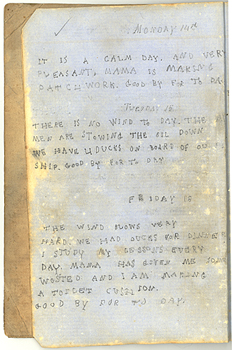 Monday 14th
IT IS A CALM DAY. AND VERY
PLEASANT, MAMA IS MAKING
PATCHWORK. GOOD BY FOR TO DAY
Tuesday 15
THERE IS NO WIND TO DAY. THE
MEN ARE STOWING THE OIL DOWN
WE HAVE 4 DUCKS ON BOARD OF OUR
SHIP. GOOD BY FOR TO DAY
FRIDAY 18
THE WIND BLOWS VERY
HARD. WE HAD DUCKS FOR DINNER
I STUDY MY LESSONS EVERY
DAY. MAMA HAS GIVEN ME SOME
WOSTED AND I AM MAKING
A TOILET CUSHION.
GOOD BY FOR TO DAY.